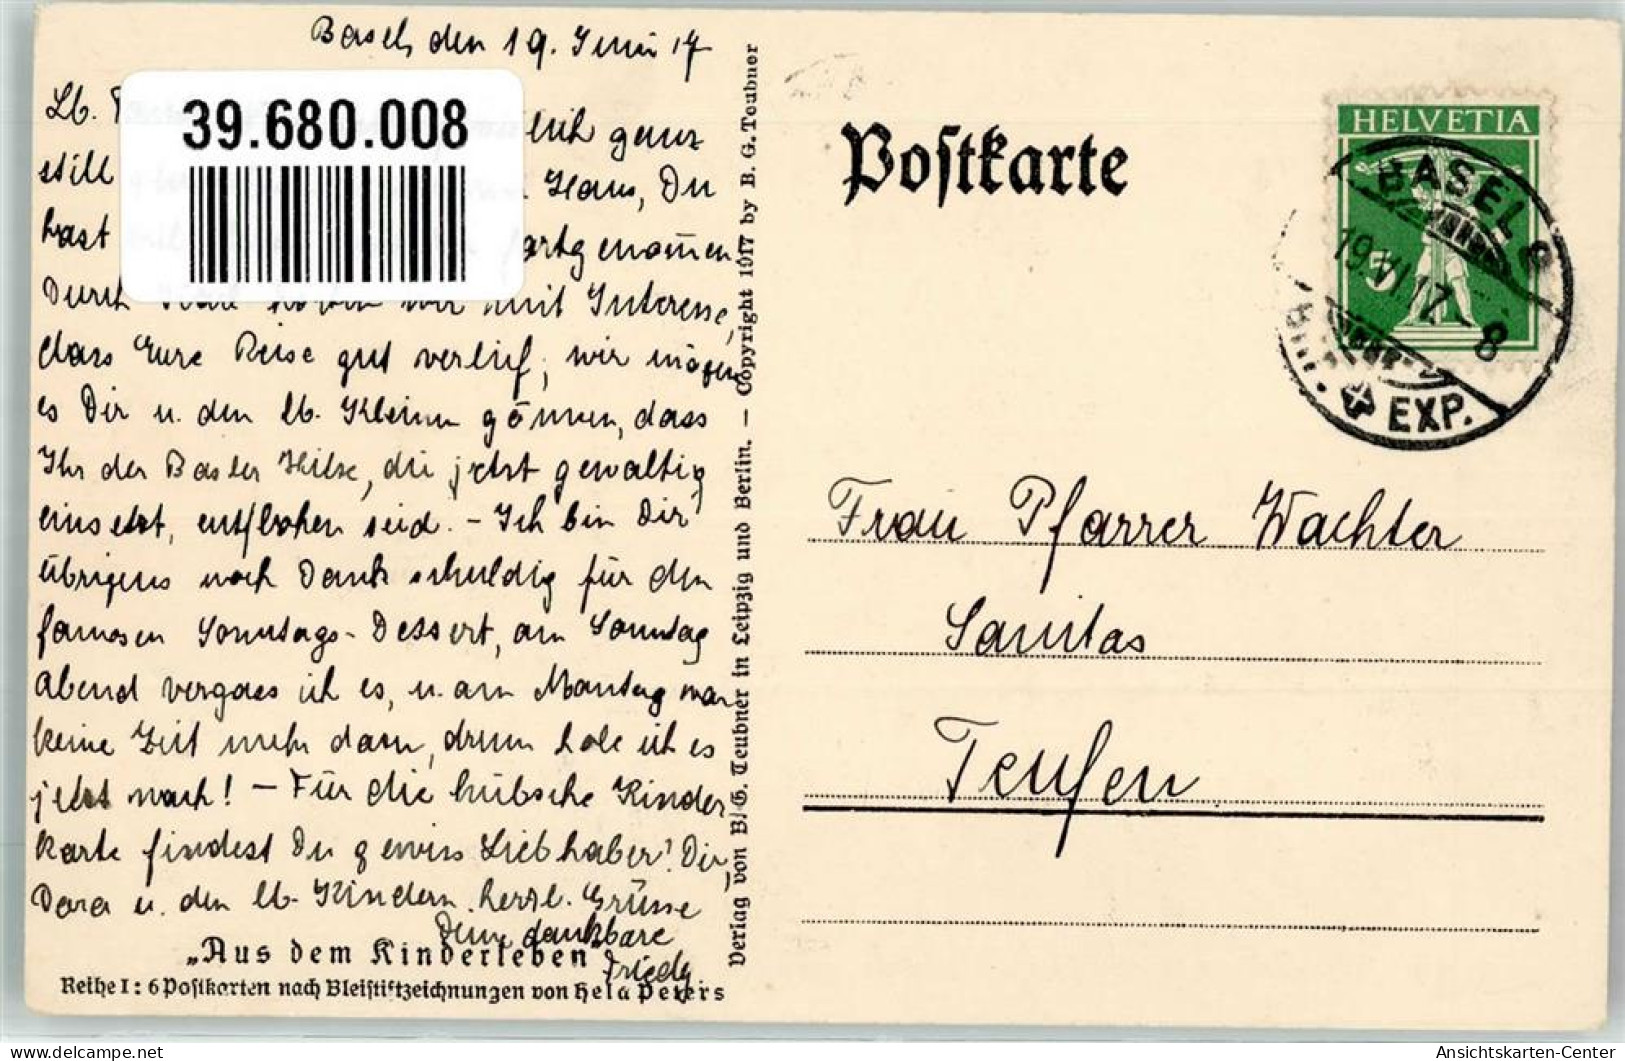 Basel, den 19. Juni 17
Lb.
39.680.008
lich ganz
still
Haus, Du
hast
fortgenom̄en
Durch haben wir mit Interesse,
dass Eure Reise gut verlief; wir mögen
es Dir u. den lb. Kleinen gönnen, dass
Ihr der Basler Hitze, die jetzt gewaltig
einsetzt, entflohen seid. – Ich bin Dir
übrigens noch Dank schuldig für den
famosen Sonntags-Dessert, am Sonntag
abend vergass ich es, u. am Montag war
keine Zeit mehr dazu, drum hole ich es
jetzt nach! – Für die hübsche Kinder
karte findest Du gewiss Liebhaber! Dir,
Dora u. den lb. Kindern herzl. Grüsse
Deine dankbare
Friedy
„Aus dem Kinderleben“
Reihe I: 6 Postkarten nach Bleistiftzeichnungen von Hela Peters
Verlag von B. G. Teubner in Leipzig und Berlin. — Copyright 1917 by B. G. Teubner
Postkarte
HELVETIA
5
BASEL 2
19.VI.17-8
EXP.
Frau Pfarrer Wachter
Sanitas
Teufen
Ansichtskarten-Center
www.delcampe.net